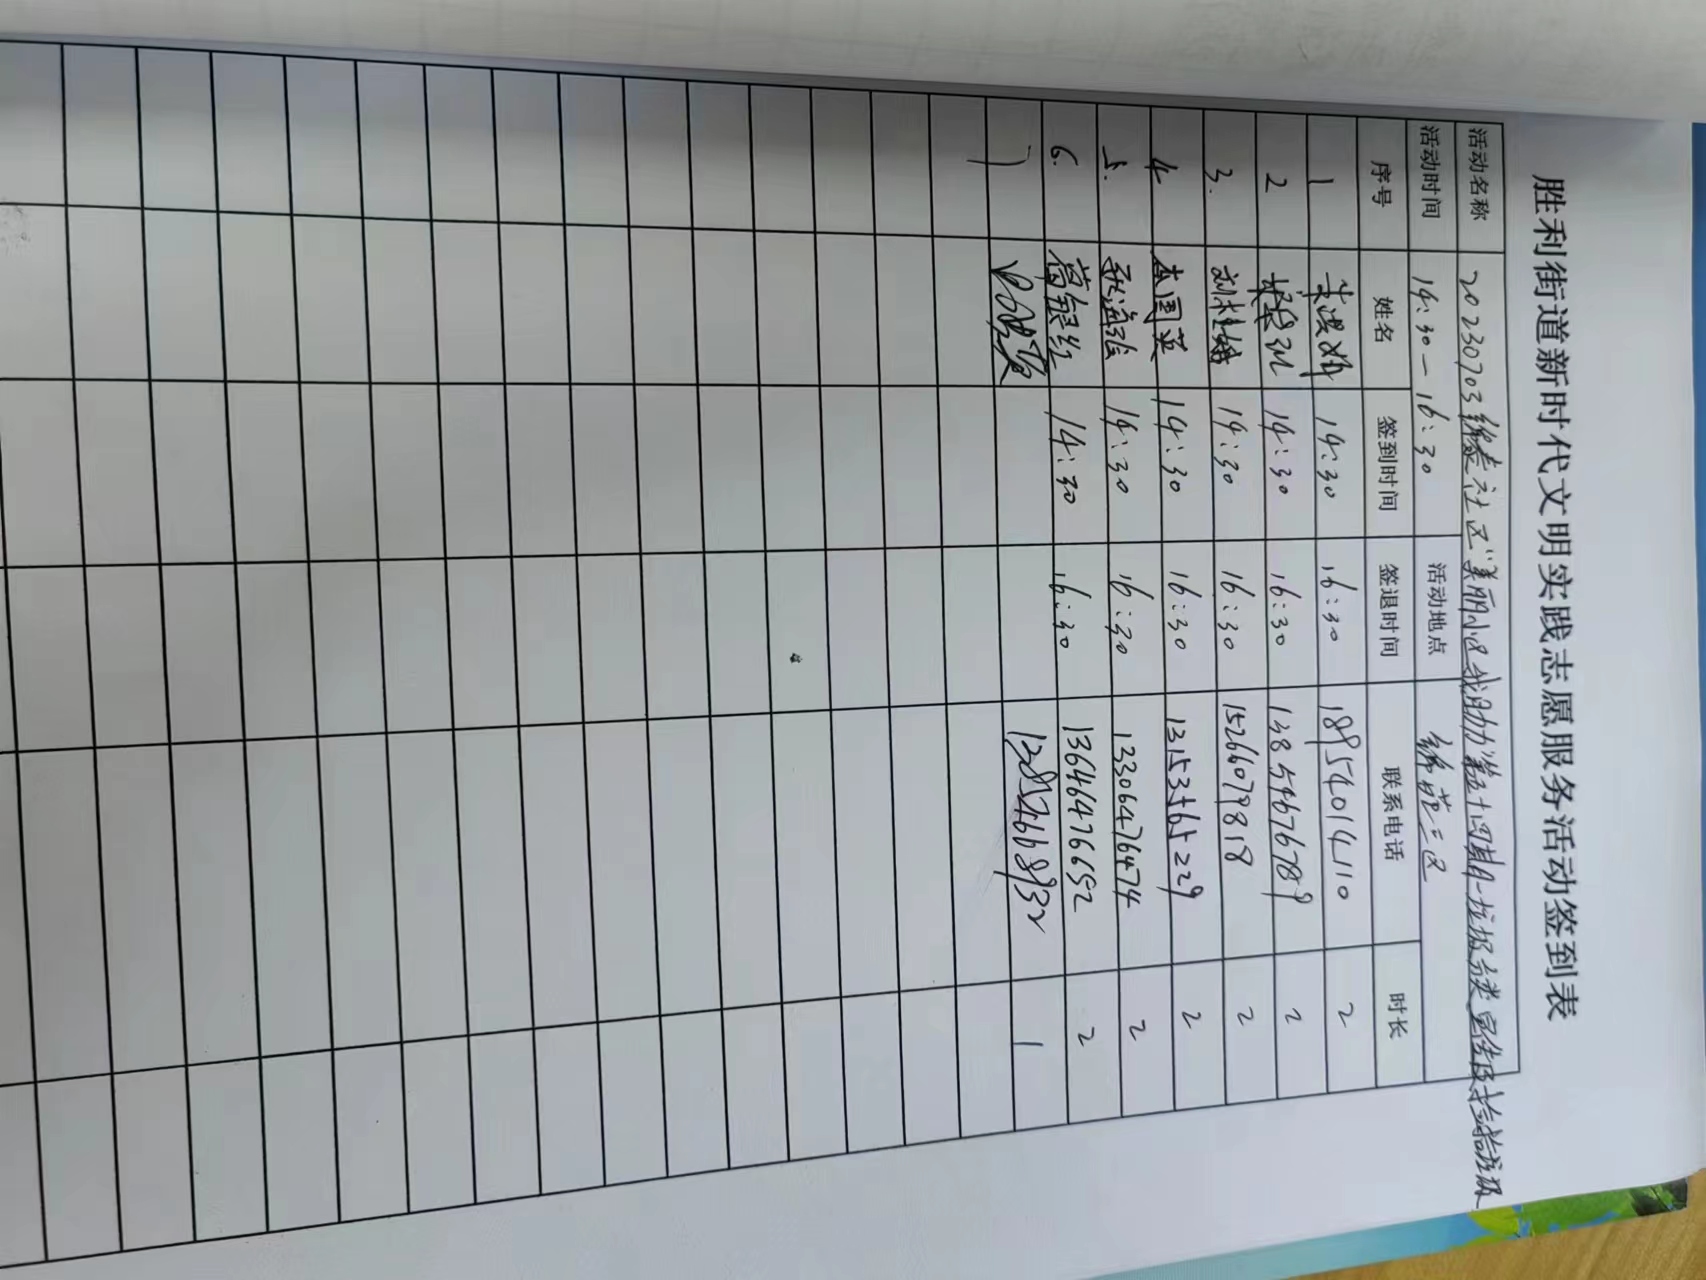 胜利街道新时代文明实践志愿服务活动签到表
活动名称 20230703锦苑社区“美丽小区我助力”第五十四期-垃圾分类宣传及捡拾垃圾
活动时间 14:30-16:30 活动地点 锦苑三区
序号 姓名 签到时间 签退时间 联系电话 时长
1 14:30 16:30 18954014110 2
2 14:30 16:30 13854676789 2
3. 刘桂娥 14:30 16:30 15266079818 2
4 14:30 16:30 13153565229 2
5. 14:30 16:30 13306476474 2
6. 14:30 16:30 13646476652 2
7 1